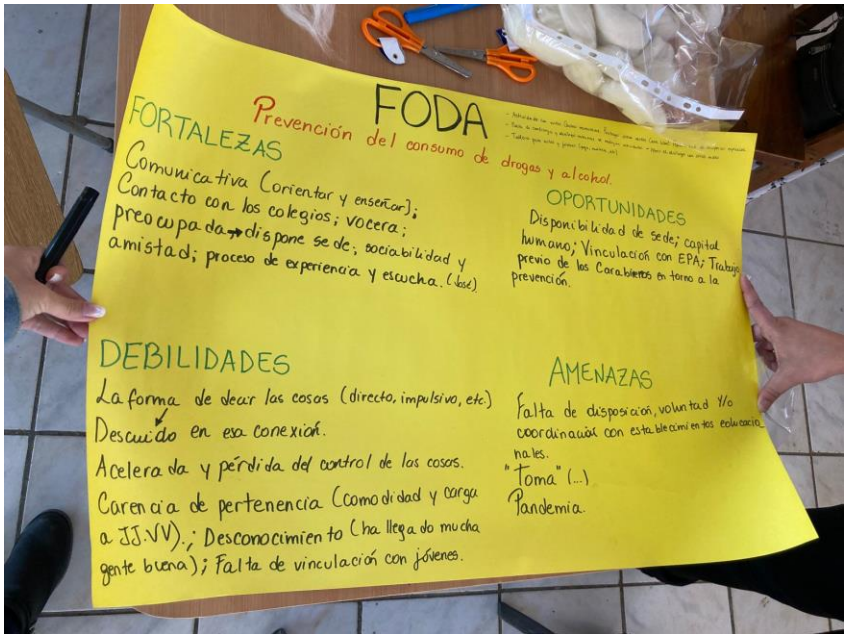 FODA
Prevención del consumo de drogas y alcohol.
FORTALEZAS
Comunicativa (orientar y enseñar);
Contacto con los colegios; vocera;
preocupada→dispone sede; sociabilidad y
amistad; proceso de experiencia y escucha. (José)
OPORTUNIDADES
Disponibilidad de sede; capital
humano; Vinculación con EPA; Trabajo
previo de los Carabineros en torno a la
prevención.
DEBILIDADES
La forma de decir las cosas (directo, impulsivo, etc.)
Descuido en esa conexión.
Acelerada y pérdida del control de las cosas.
Carencia de pertenencia (comodidad y carga
a JJ.VV).; Desconocimiento (ha llegado mucha
gente buena); Falta de vinculación con jóvenes.
AMENAZAS
Falta de disposición, voluntad y/o
coordinación con establecimientos educacio
nales.
"Toma" (...)
Pandemia.